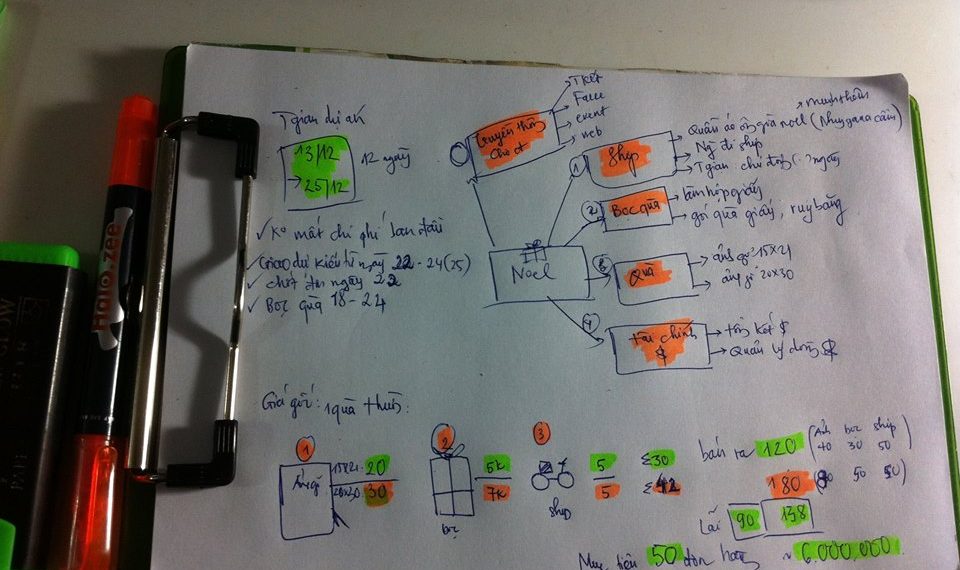 Tgian dự án
13/12
→ 25/12
12 ngày
✓ Ko mất chi phí ban đầu
✓ Giao dự kiến từ ngày 22 - 24 (25)
✓ chốt đơn ngày 22
✓ Bọc quà 18 - 24
Truyền thông
cho ct
TKết
Face
event
web
Noel
1
Ship
Quần áo ông già noel
Ng đi ship
Tgian chủ động
2
Bọc quà
làm hộp giấy
gói quà giấy, ruy băng
Quà
ảnh gỗ 15x21
ảnh gỗ 20x30
4
Tài chính
$
tổng kết $
Quản lý dòng $
Giá gói: 1 quà
1
15x21: 20
20x30: 30
2
bọc
5k
7k
3
ship
5
5
Σ30
Σ42
bán ra 120
Ảnh bọc ship
40 30 50
180
50 50
Lãi 90 138
Mục tiêu 50 đơn hàng ~ 6.000.000
Halo.zee